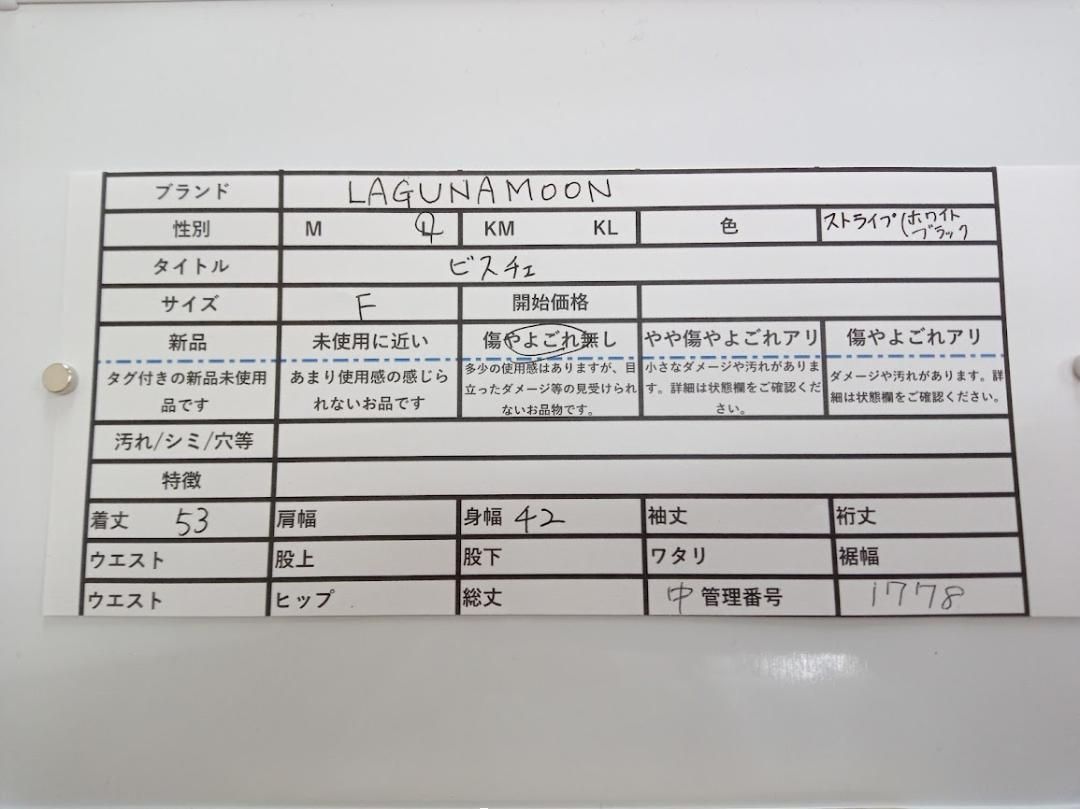 ブランド LAGUNAMOON
性別 M L KM KL 色 ストライプ(ホワイト
ブラック
タイトル ビスチェ
サイズ F 開始価格
新品 未使用に近い 傷やよごれ無し やや傷やよごれアリ 傷やよごれアリ
タグ付きの新品未使用
品です
あまり使用感の感じら
れないお品です
多少の使用感はありますが、目
立ったダメージ等の見受けられ
ないお品物です。
小さなダメージや汚れがありま
す。詳細は状態欄をご確認くだ
さい。
ダメージや汚れがあります。詳
細は状態欄をご確認ください。
汚れ/シミ/穴等
特徴
着丈 53 肩幅 身幅 42 袖丈 裄丈
ウエスト 股上 股下 ワタリ 裾幅
ウエスト ヒップ 総丈 中 管理番号 1778